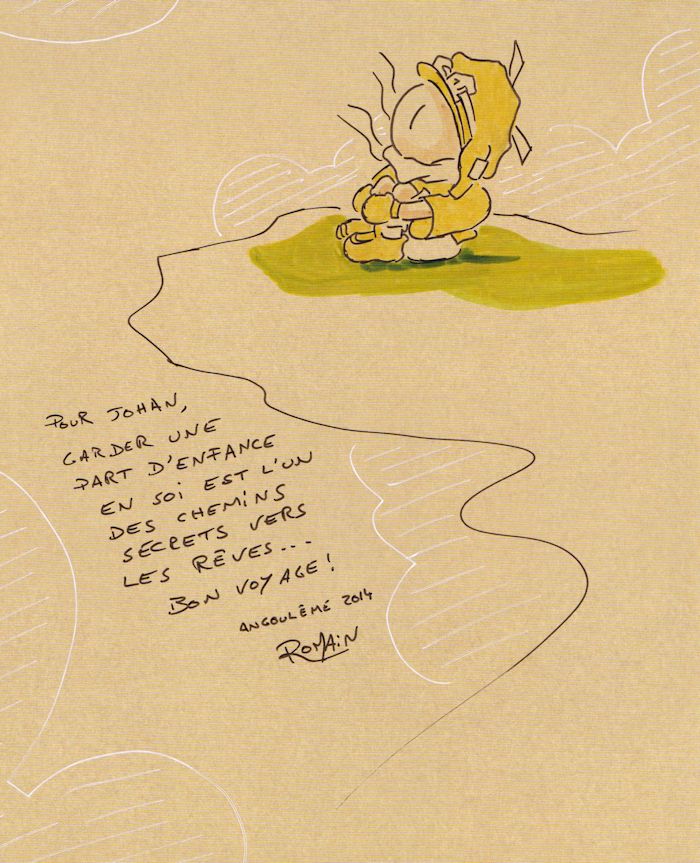 POUR JOHAN,
GARDER UNE
PART D'ENFANCE
EN SOI EST L'UN
DES CHEMINS
SECRETS VERS
LES RÊVES...
BON VOYAGE !
ANGOULÊME 2014
ROMAIN